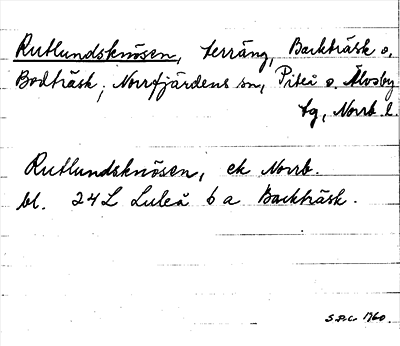 Rutlundsknösen, terräng, Backträsk o.
Bodträsk; Norrfjärdens sn, Piteå o. Älvsby
tg, Norrb. l.
Rutlundsknösen, ek Norrb.
bl. 24 L Luleå 6 a Backträsk.
1960.